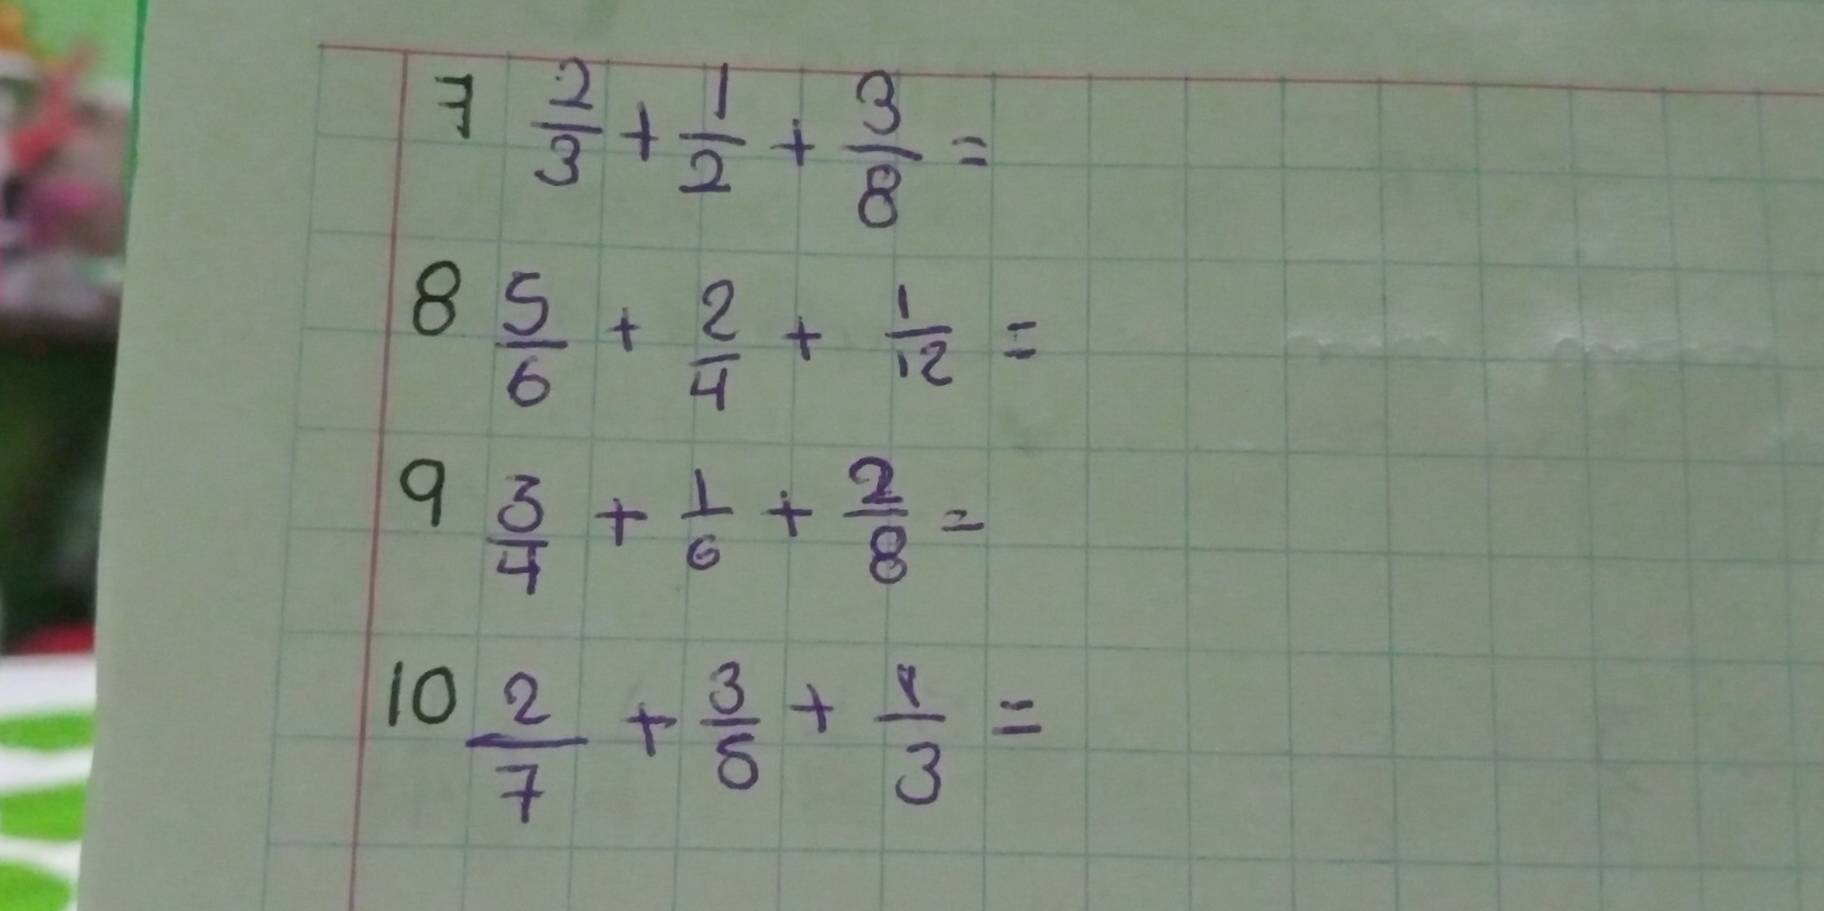 7 2/3 + 1/2 + 3/8 =
8 5/6 + 2/4 + 1/12 =
9 3/4 + 1/6 + 2/8 =
10 2/7 + 3/5 + 1/3 =